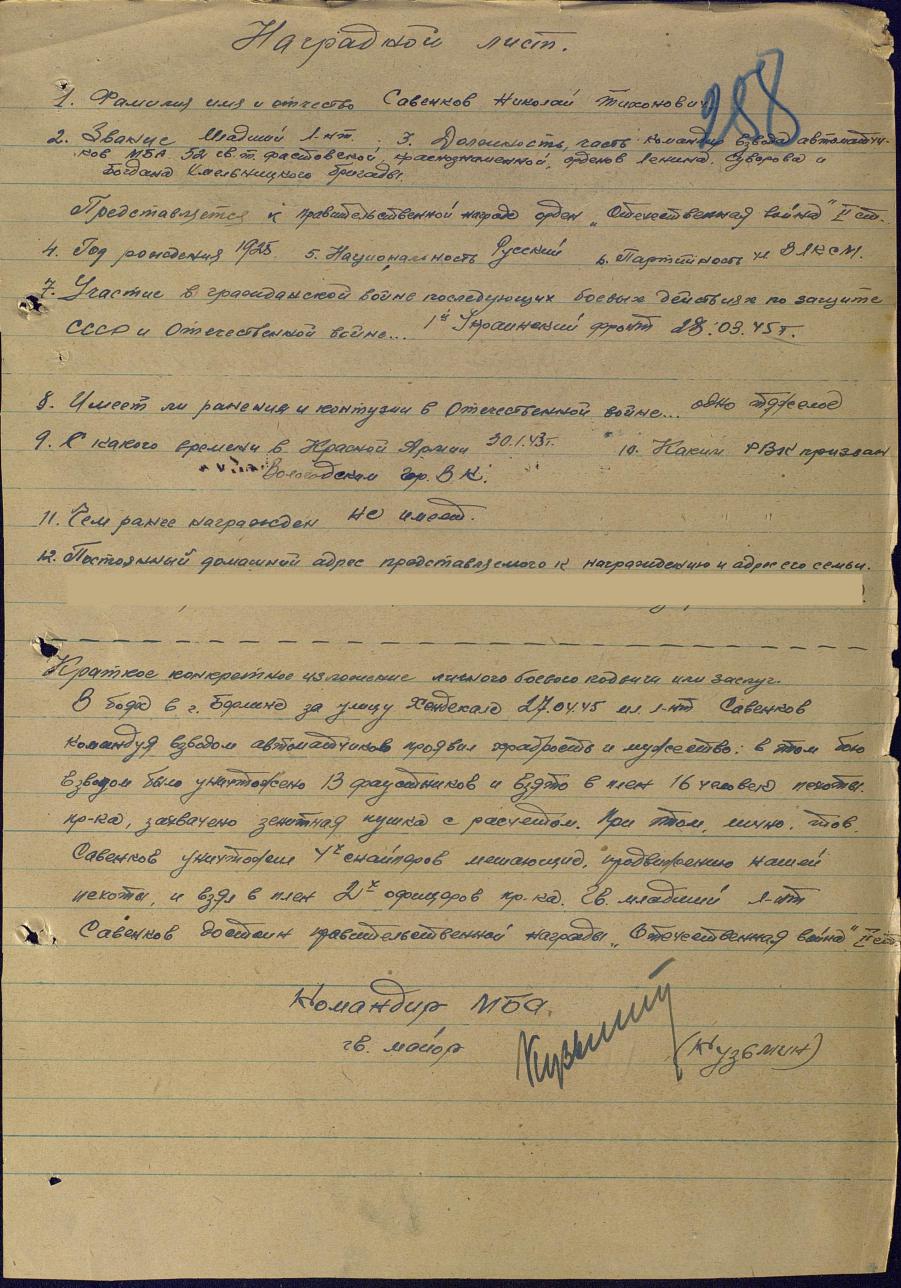 Наградной лист.
288
1. Фамилия имя и отчество Савенков Николай Тихонович
2. Звание Младший л-нт. 3. Должность, часть командир взвода автоматчи-
ков МБА 52 гв. т. фастовской, краснознаменной, орденов Ленина, Суворова и
Богдана Хмельницкого бригады.
Представляется к правительственной награде орден „Отечественная война" II ст.
4. Год рождения 1925. 5. Национальность Русский 6. Партийность чл ВЛКСМ.
7. Участие в гражданской войне последующих боевых действиях по защите
СССР и Отечественной войне... 1й Украинский фронт 28.03.45 г.
8. Имеет ли ранения и контузии в Отечественной войне... одно тяжелое
9. С какого времени в Красной Армии 30.1.43 г. 10. Каким РВК призван
Вологодским гор. В К.
11. Чем ранее награжден не имеет.
12. Постоянный домашний адрес представляемого к награждению и адрес его семьи.
Краткое конкретное изложение личного боевого подвига или заслуг.
В боях в г. Берлине за улицу 27.04.45 мл л-нт Савенков
командуя взводом автоматчиков проявил храбрость и мужество: в этом бою
взводом было уничтожено 13 фаустников и взято в плен 16 человек пехоты
пр-ка, захвачено зенитная пушка с расчетом. При этом, лично, тов.
Савенков уничтожил 4х снайперов мешающих, продвижению нашей
пехоты, и взял в плен 2х офицеров пр-ка. Гв. младший л-нт
Савенков достоин правительственной награды „Отечественная война" II ст
Командир МБА.
гв. майор Кузьмин (Кузьмин)